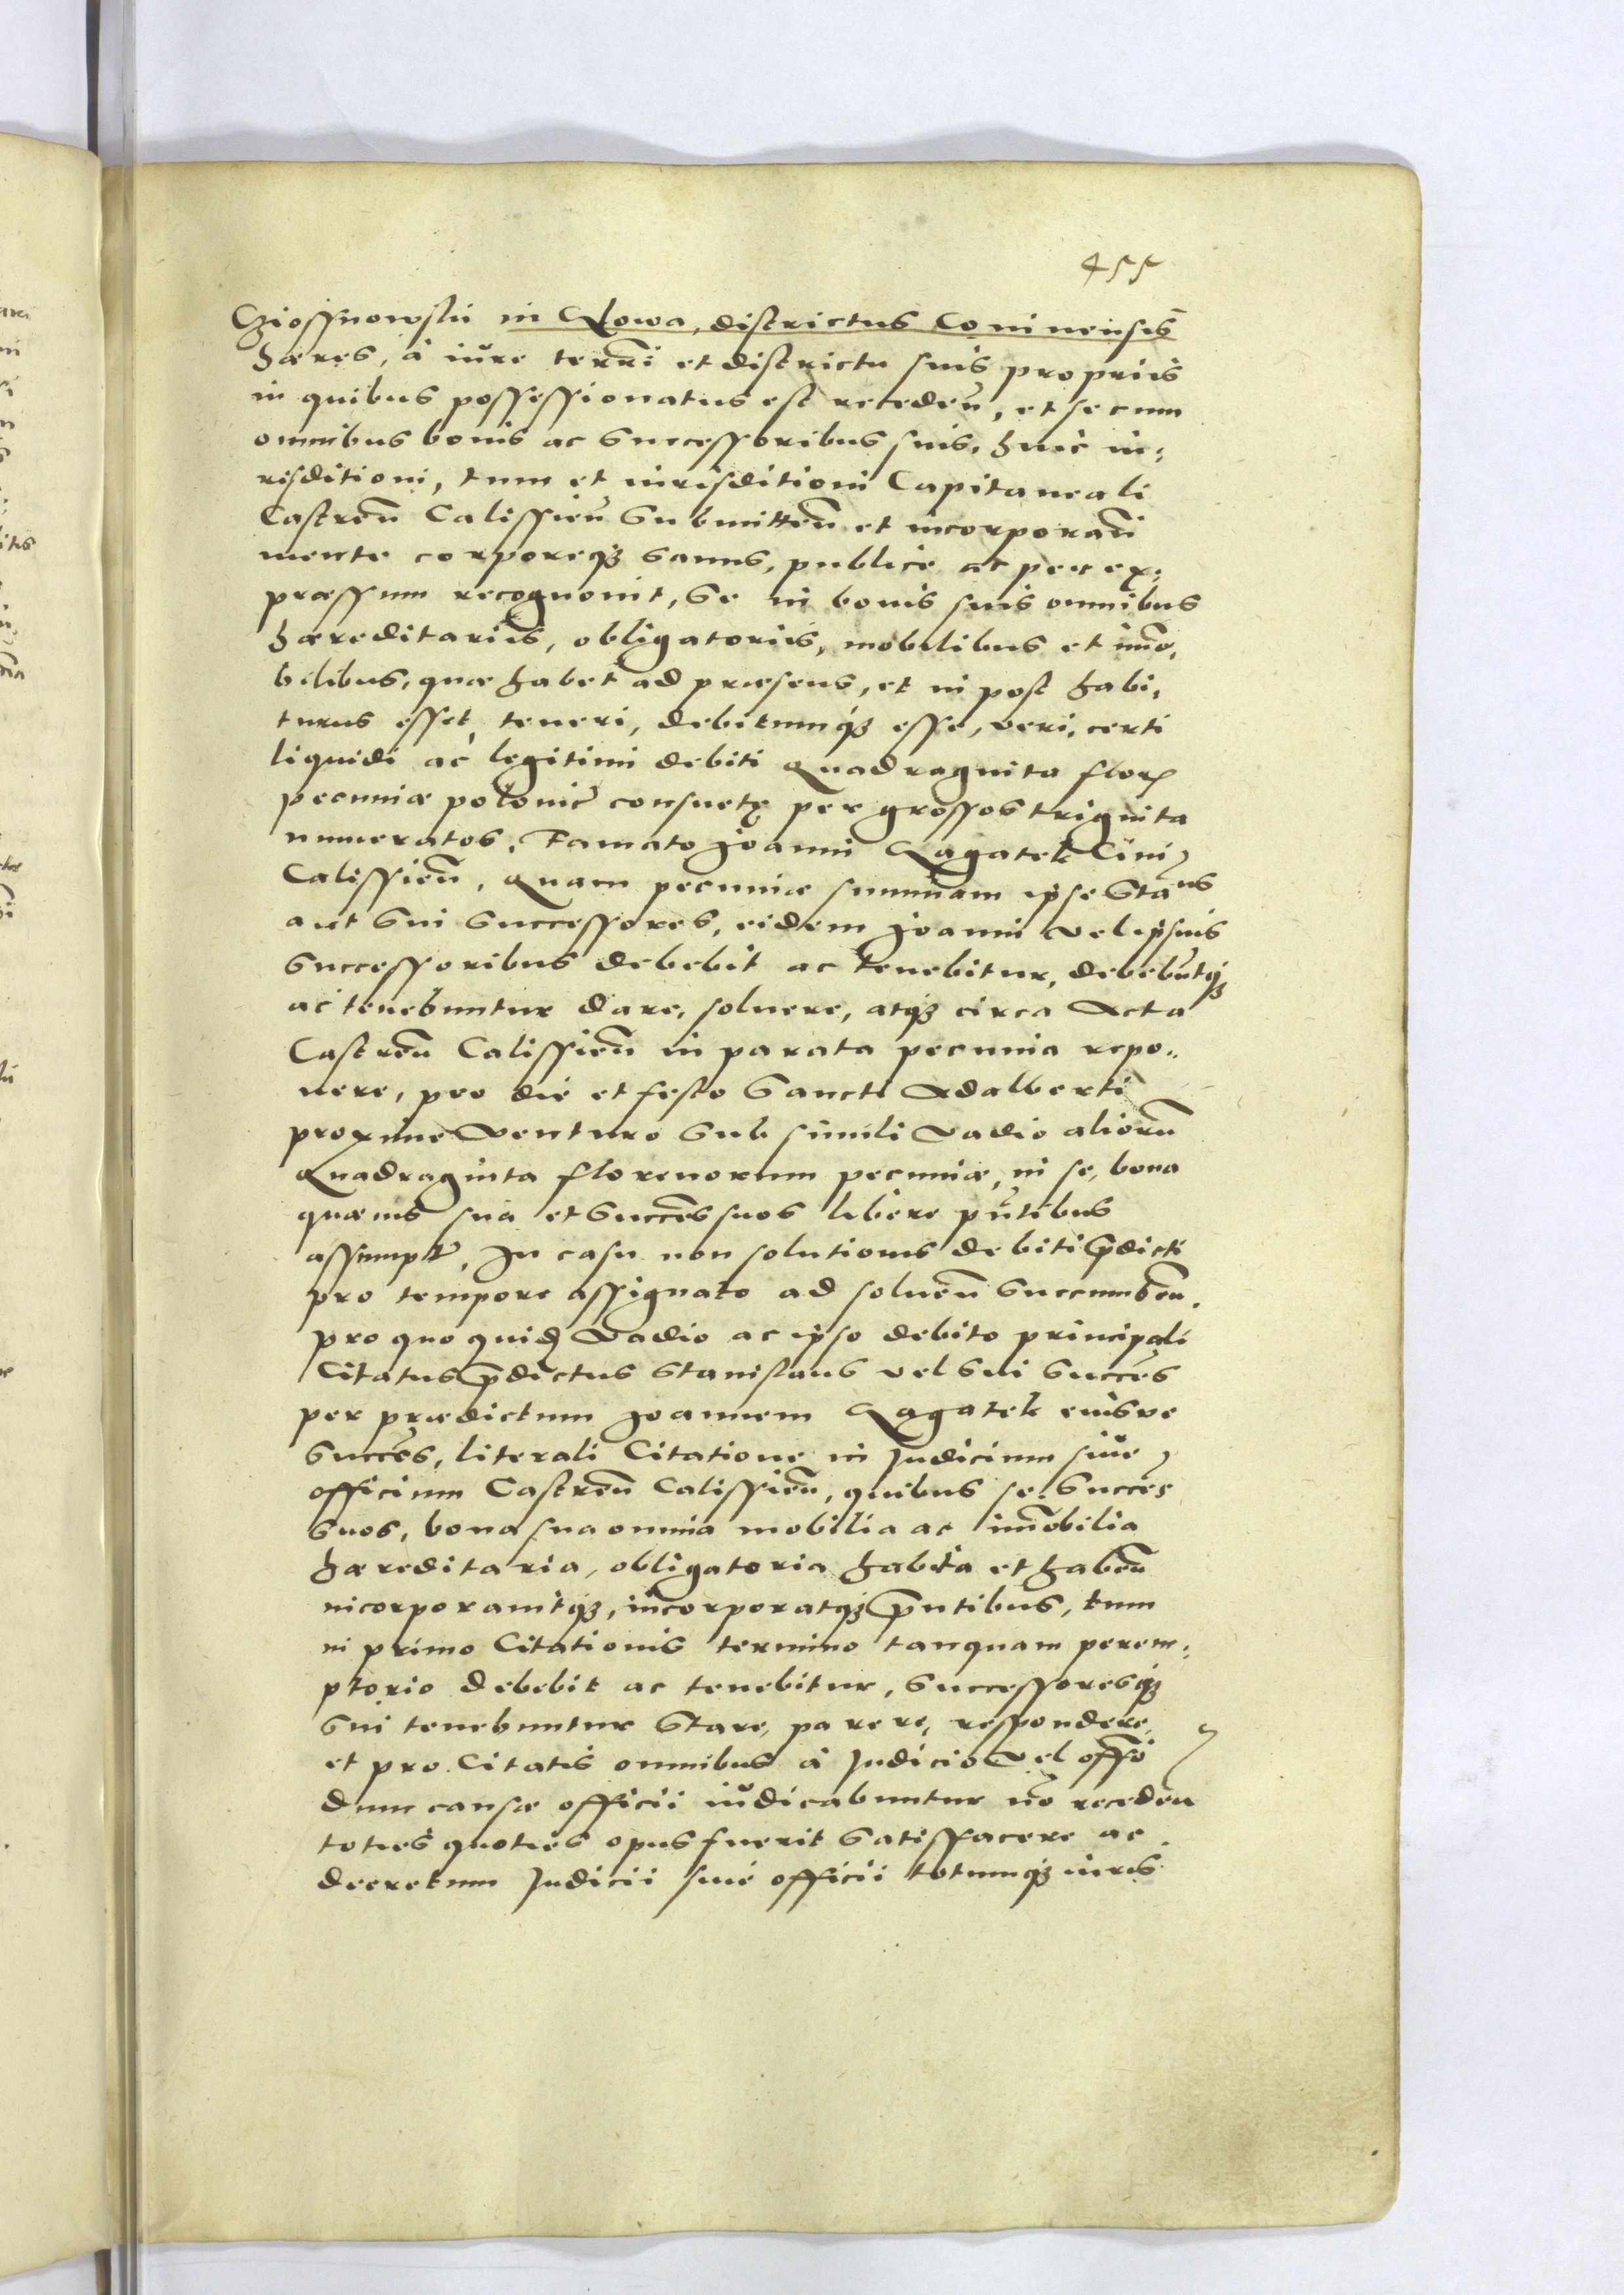 455
Cziossnowskii in Qlowa, districtus Coninensis
hæres, à iure terrēi et districtu suis propriis
in quibus possessionatus est recedeñ, et se cum
omnibus bonis ac successoribus suis, huic iu:
risditioni, tum et iurisditioni Capitaneali
Castreñ Calissieñ submitteñ et incorporañ
mente corporeq₃ sanus, publice ac per ex:
præssum recognouit, se in bonis suis omnibus
hæreditariis, obligatoriis, mobilibus et im̄o,
bilibus, quæ habet ad præsens, et in post habi,
turus esset teneri, debitumq₃ esse, veri, certi
liquidi ac legitimi debiti Quadraginta flor
pecuniæ polonic consuetę per grossos triginta
numeratos, Famato Joanni Lagatek Ciui
Calissieñ, Quam pecuniæ summam ipse Staus
aut sui successores, eidem Joanni vel ipsius
successoribus debebit ac tenebitur, debebūtq₃
ac tenebuntur dare, soluere, atq₃ circa Acta
Castreñ Calissieñ in parata pecunia repo..
nere, pro die et festo Sancti Adalberti
proxime Venturo sub simili Vadio aliorū
Quadraginta florenorum pecuniæ, in se, bona
quæuis sua et succēs suos libere pn̄tibus
assumpt, In casu non solutionis debiti p̄dicti
pro tempore assignato ad solueñ succumbeñ.
pro quo quid Vadio ac ipso debito principali
Citatus p̄dictus Stanislaus vel sui succēs
per prædictum Joannem Lagatek eiusve
succēs, literali Citatione in Judicium siue
officium Castreñ Calissieñ, quibus se succēs
suos, bona sua omnia mobilia ac im̄obilia
hæreditaria, obligatoria habita et habeñ
incorporauitq₃, incorporatq₃ p̄ntibus, tum
in primo Citationis termino tanquam perem:
ptorio debebit ac tenebitur, successoresq₃
sui tenebuntur stare, parere, respondere,
et pro Citatis omnibus à Judicio vel offō
dum causæ officii iudicabuntur nō recedeñ
toties quoties opus fuerit satisfacere ac
decretum Judicii siue officii totumq₃ iuris